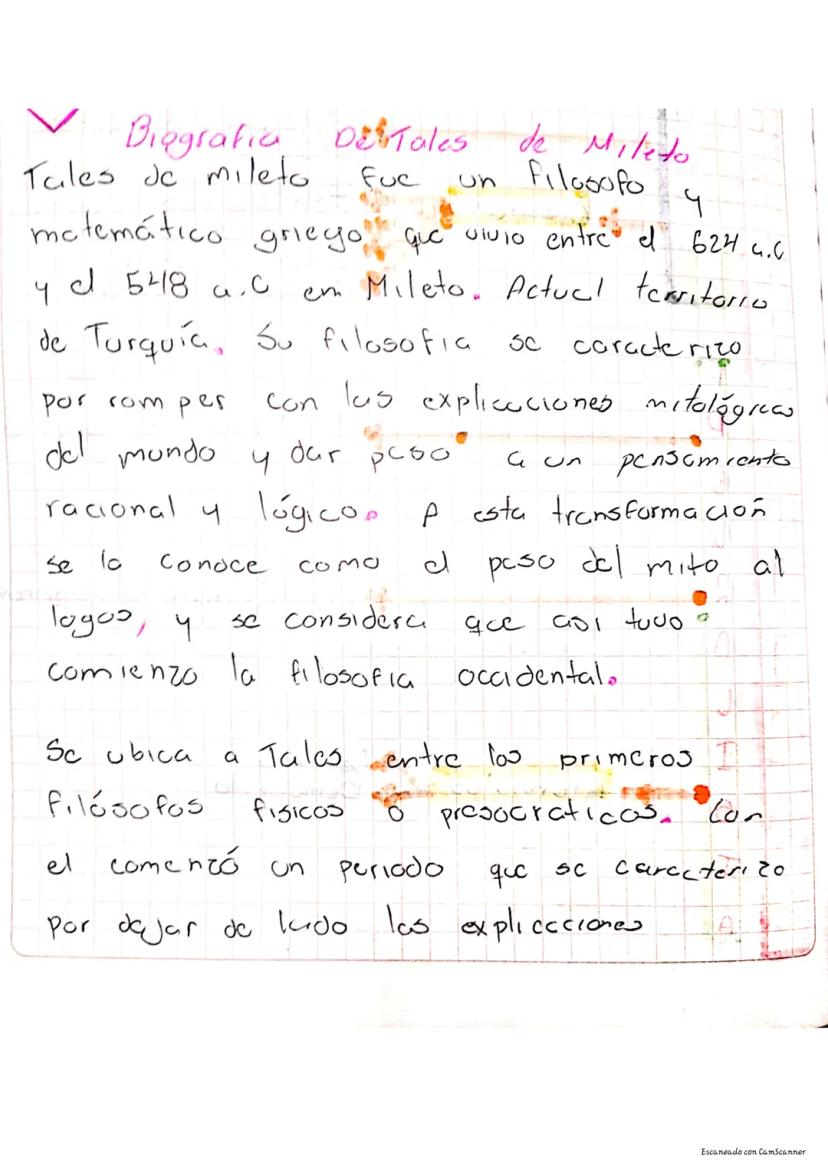 Biografia De Tales de Mileto
Tales de mileto fue un filosofo y
matemático griego que vivio entre el 624 a.C
y el 548 a.C en Mileto. Actual territorio
de Turquía. Su filosofia se caracterizo
por romper con las explicaciones mitológicas
del mundo y dar paso a un pensamiento
racional y lógico. A esta transformación
se la conoce como el paso del mito al
logos, y se considera que asi tuvo
comienzo la filosofia occidental.
Se ubica a Tales entre los primeros
filósofos fisicos o presocraticos. Con
el comenzó un periodo que se caracterizo
por dejar de lado las explicaciones
Escaneado con CamScanner